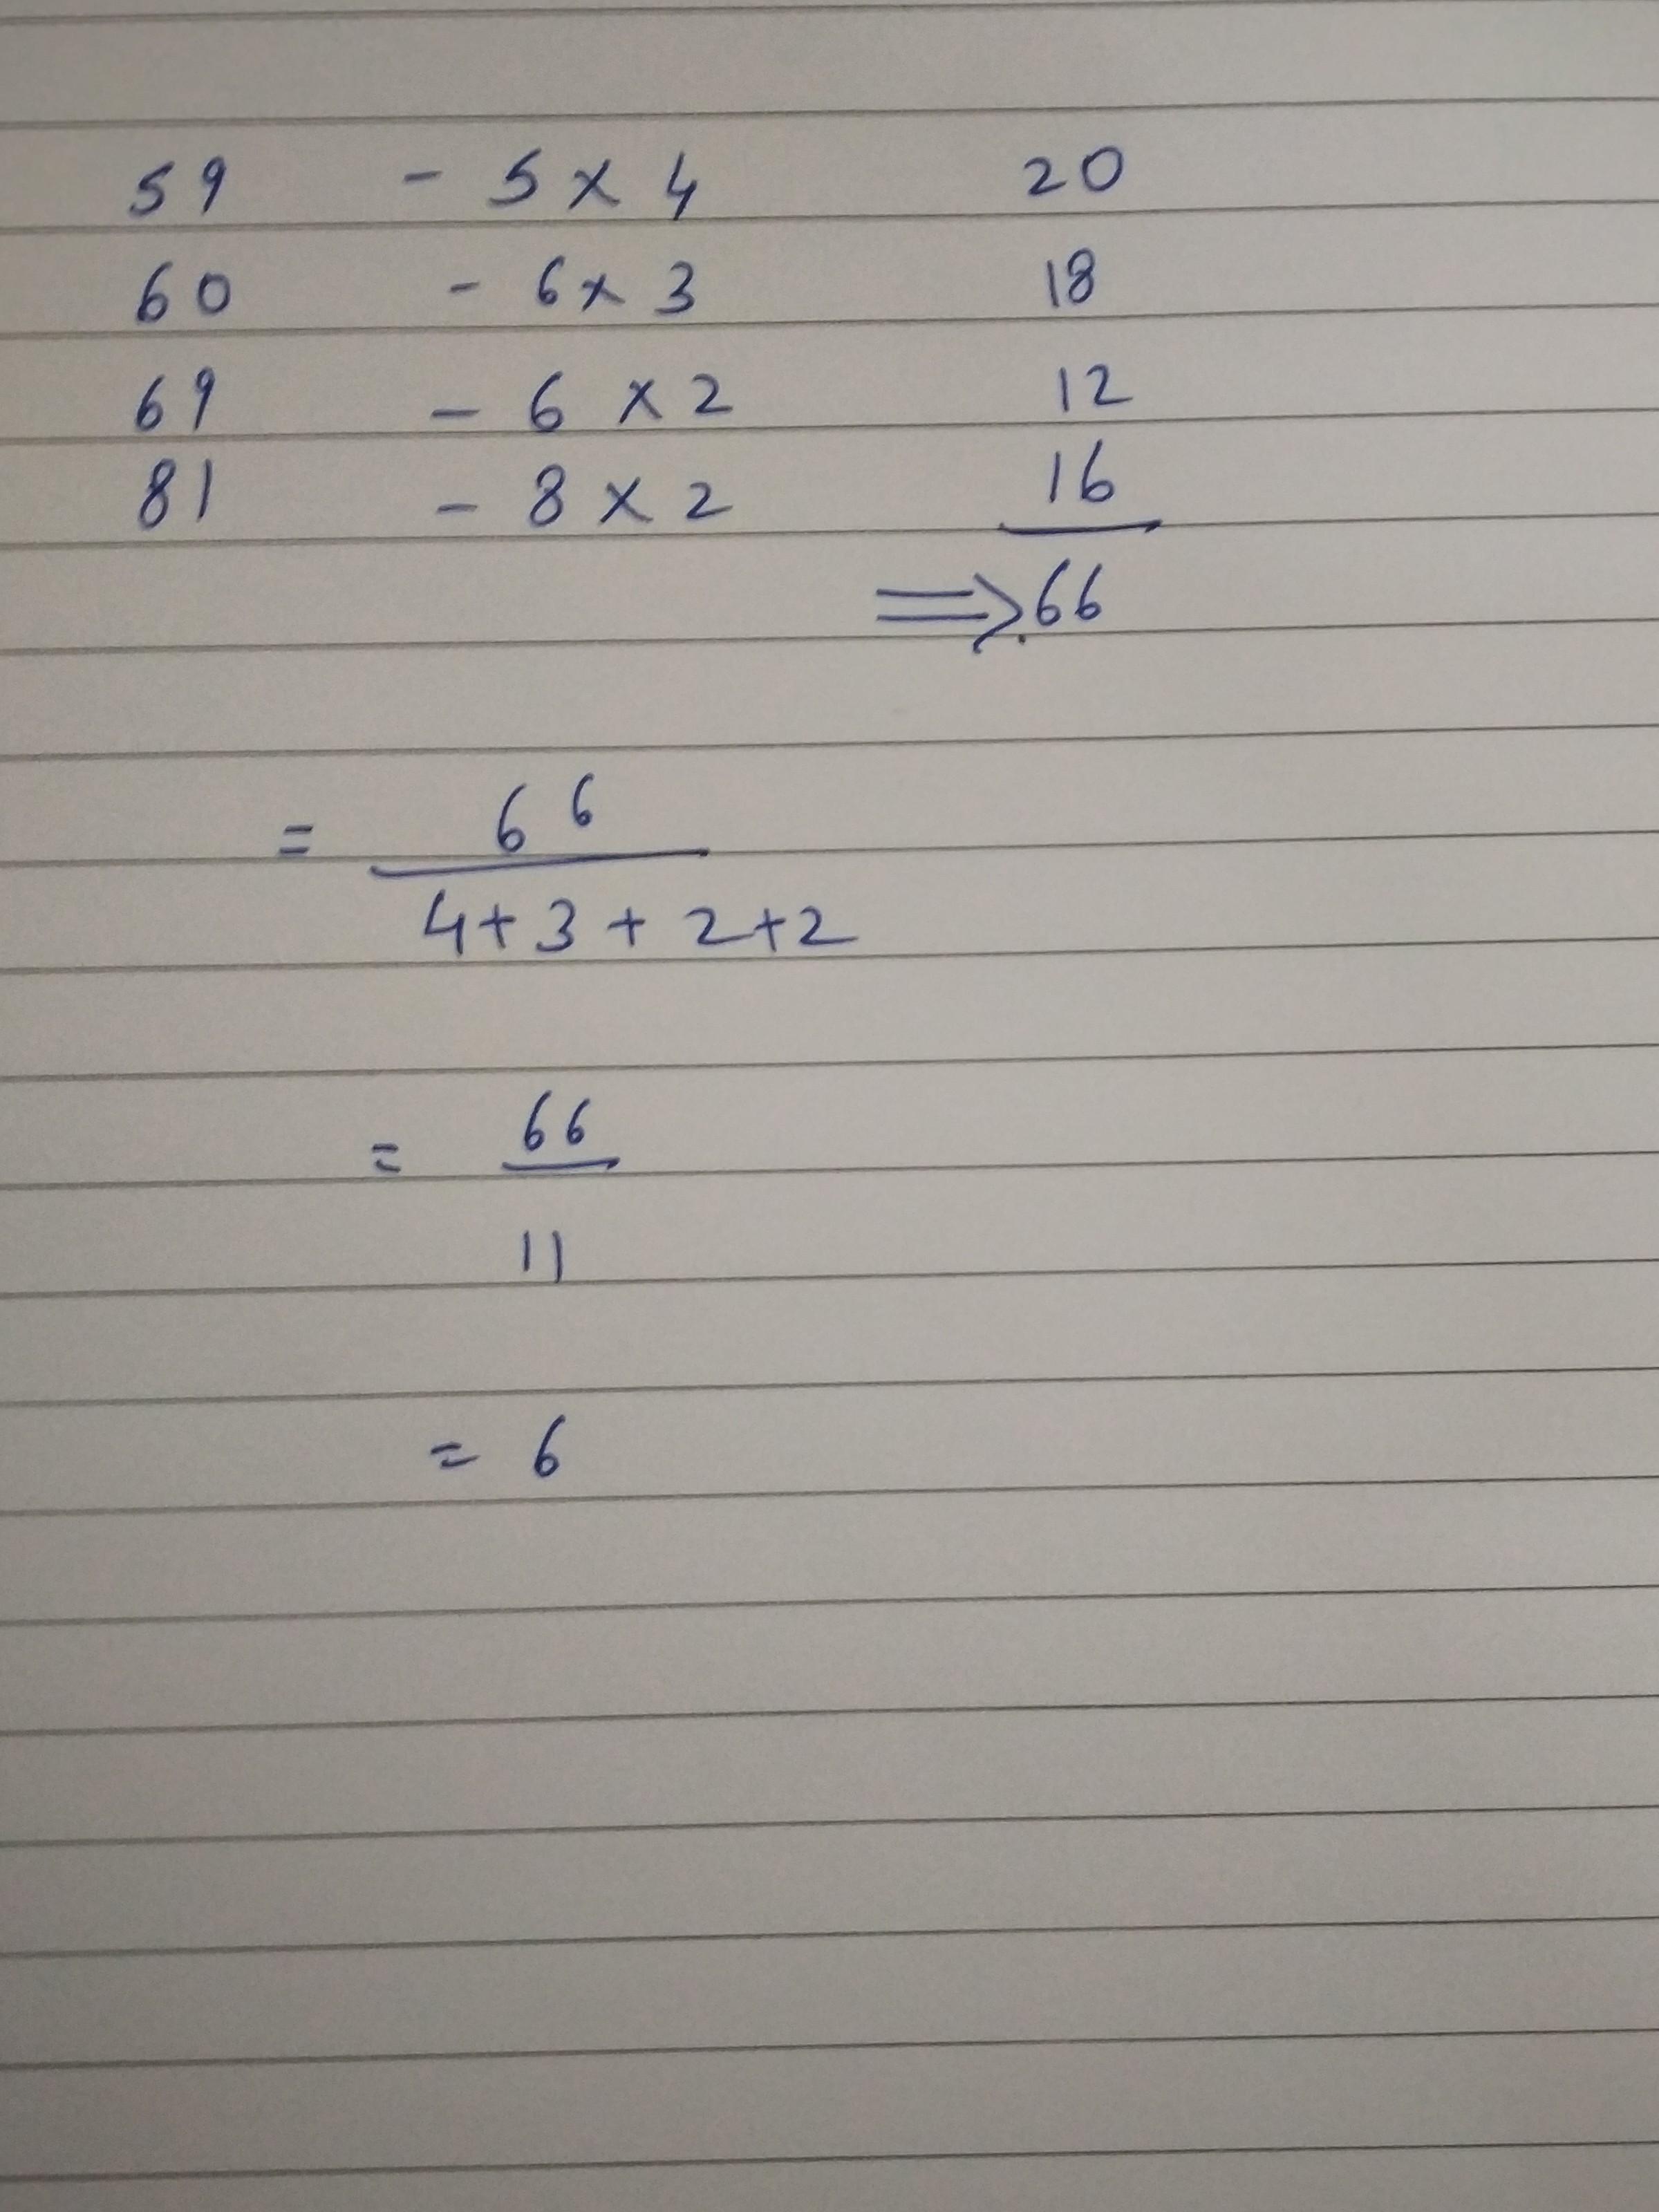 59 - 5 x 4 20
60 - 6 x 3 18
69 - 6 x 2 12
81 - 8 x 2 16
⇒ 66
= 66
4+3+2+2
= 66
11
= 6